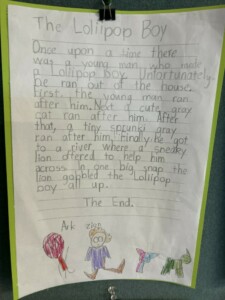 The Lollipop Boy
Once upon a time there
was a young man who made
a Lollipop Boy. Unfortunately
he ran out of the house.
First the young man ran
after him. Next a cute gray
cat ran after him. After
that, a tiny spunky
ran after him. Finally he got
to a river, where a sneaky
lion offered to help him
across. In one big snap the
lion gobbled the Lollipop
boy all up.
The End.